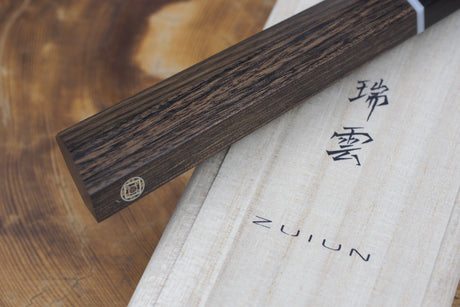 瑞
雲
ZUIUN